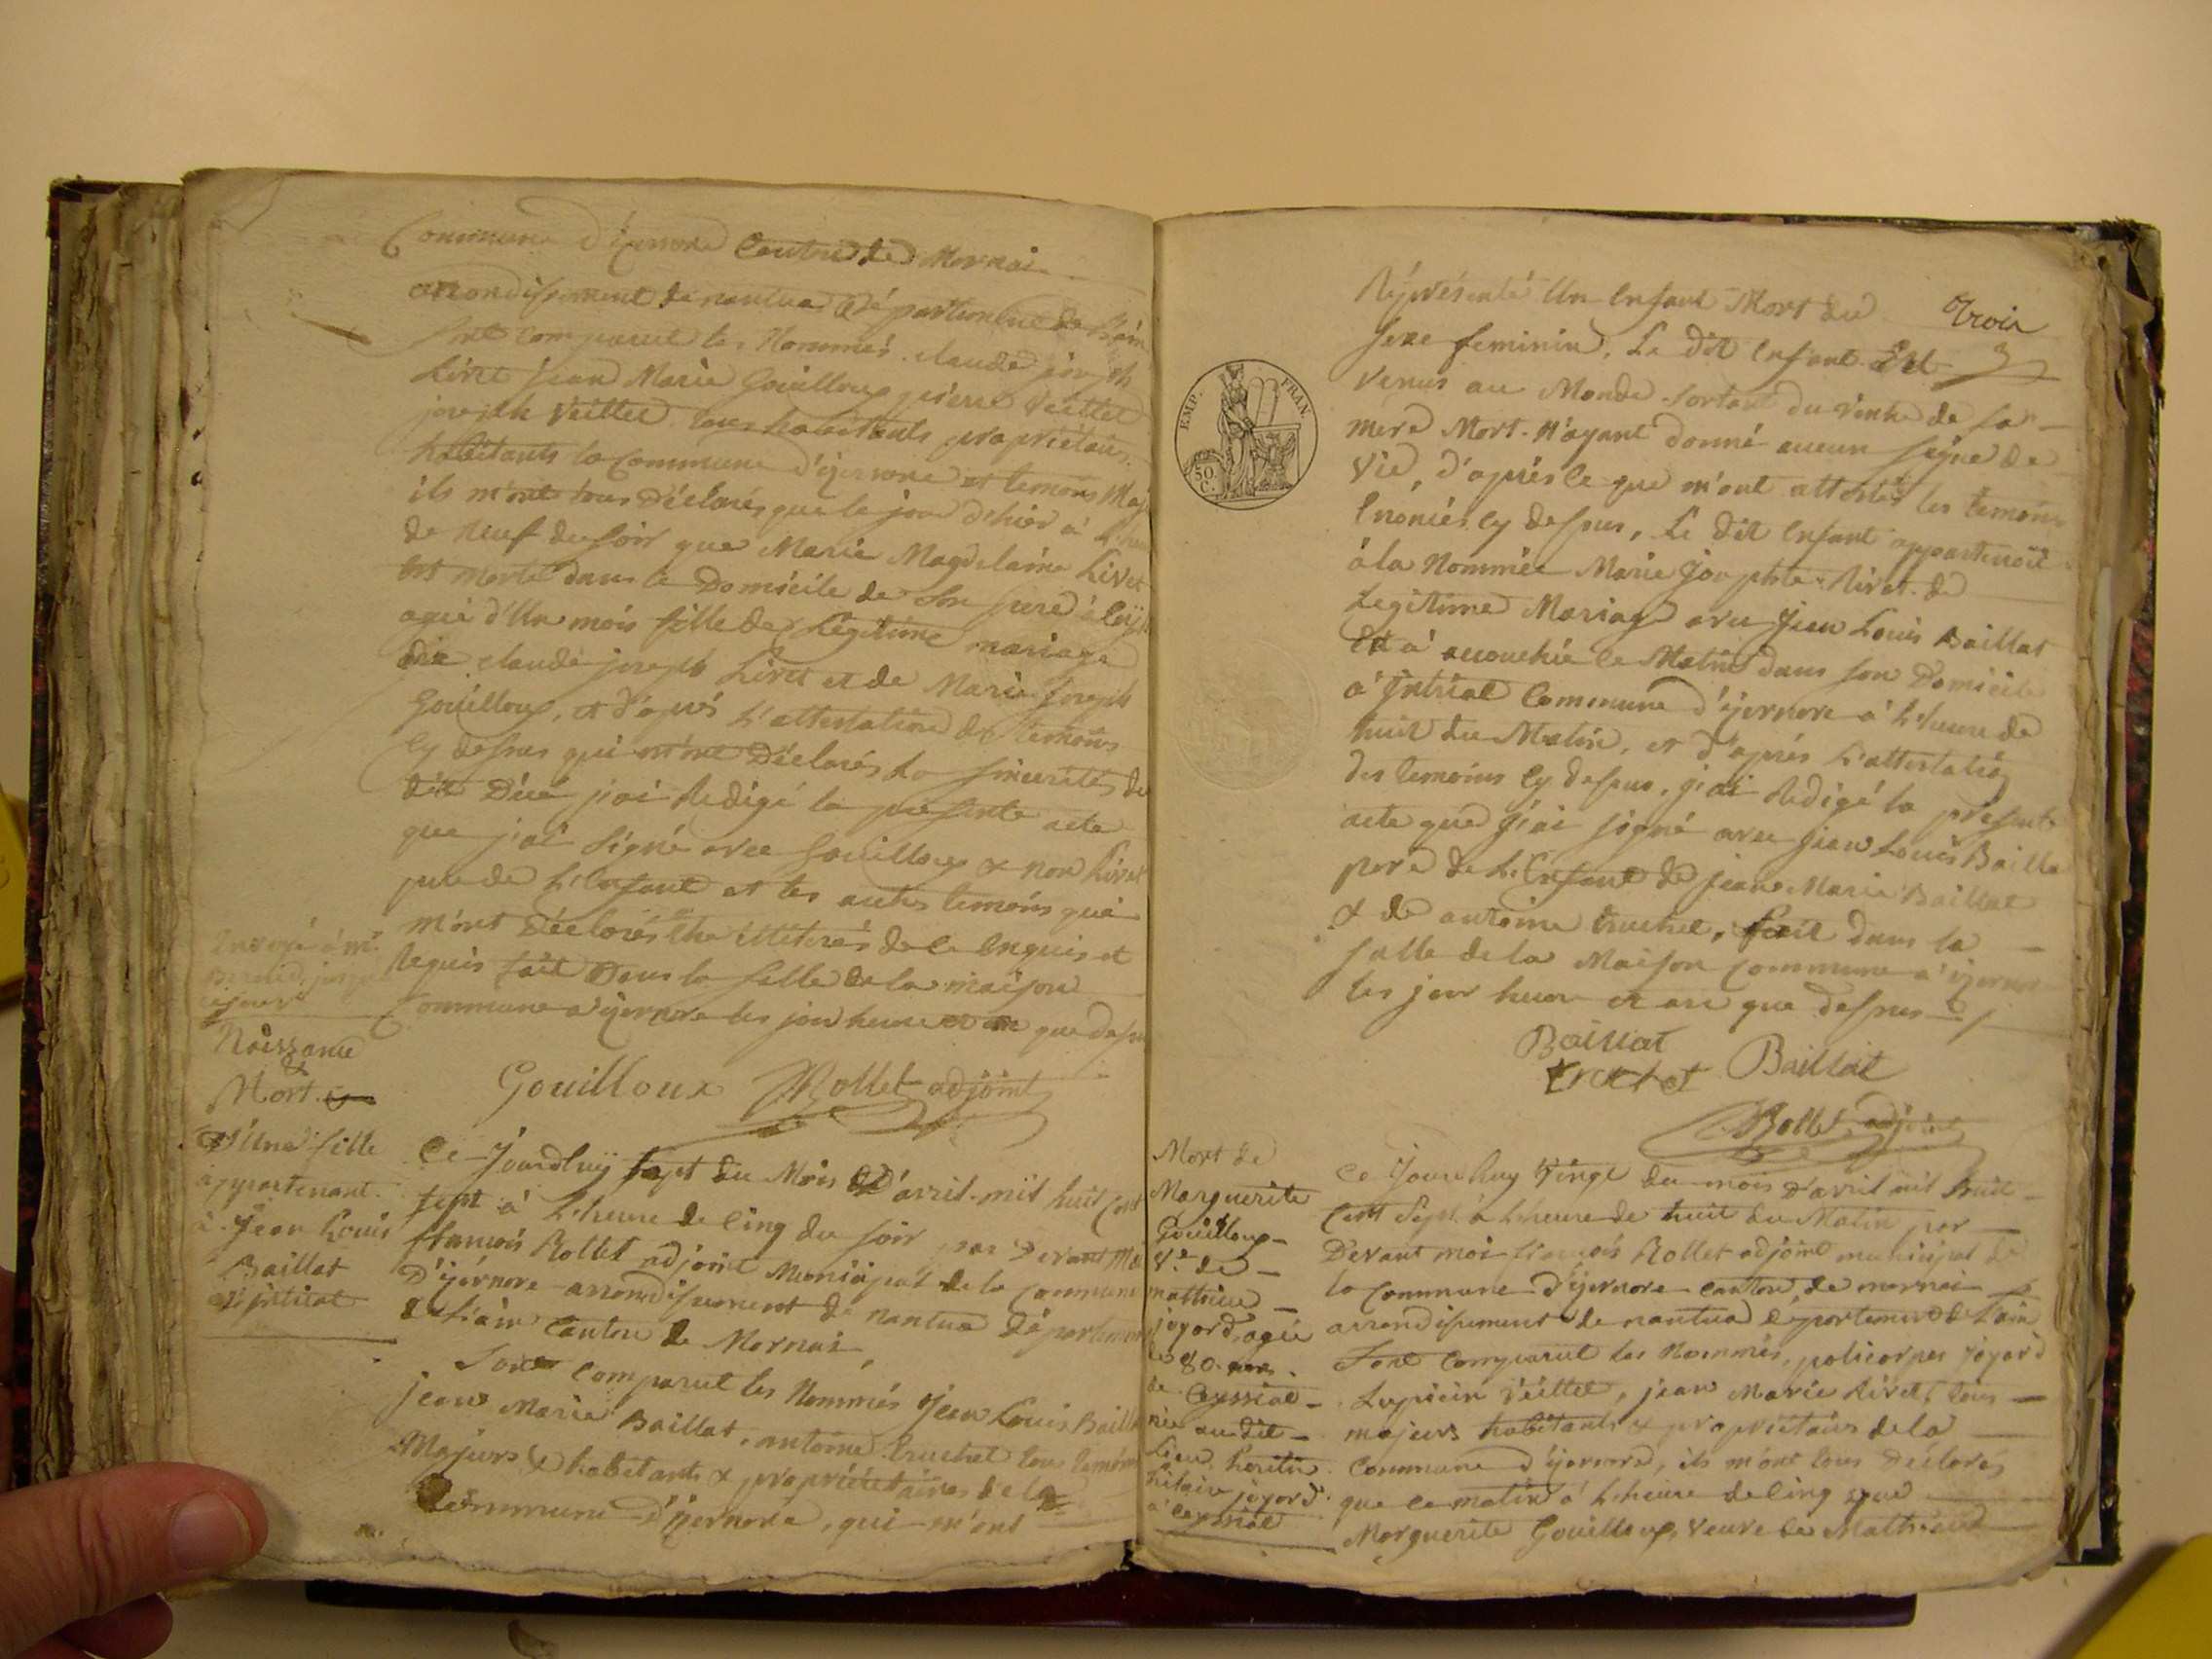 Commune d'izernore Canton de Mornai
arrondissement de nantua Département de l'ain
sont comparut les Nommés claude joseph
Livet jean Marie Gouilloux pierre Veillet
joseph Veillet tous habitants propriétaire
habitants la Commune d'izernore et temoins Maj
ils m'ont tous déclarés que le jour d'hier à l'heure
de neuf du soir que Marie Magdelaine Livet
est morte dans le Domicile de son pere à
agée d'Un mois fille de Legitime mariage
de claude joseph Livet et de Marie Joseph
Gouilloux, et d'après l'attestation de temoins
cy dessus qui m'ont Déclarés la sincerités du
dit Décé j'ai Redigé la presente acte
que j'ai signé avec Gouilloux & non Livet
pere de l'Enfant et les autres temoins qui
m'ont déclarés être illiterés de ce enquis et
Requis fait Dans la salle de la maison
Commune a izernore les jour heure et an que dessu
Gouilloux Rollet adjoint
Envoyé à Mr
jusqu
ce jour
Naissance
&
Mort
d'Une fille
appartenant
à Jean Louis
Baillat
d'intriat
Ce Jourdhuy sept du Mois d'avril mil huit cent
sept à l'heure de cinq du soir par devant Moi
francois Rollet adjoint Municipal de la commune
D'izernore arrondissement de nantua département
de l'ain Canton de Mornai
Sont comparut les Nommés Jean Louis Baill
jean Marie Baillat, antoine truchet tous temoins
Majeurs & habitants & propriétaires de la
Commune d'izernore, qui m'ont
Trois
3
Représenté Un Enfant Mort du
sexe feminin, Le dit Enfant Est
Venus au Monde sortant du ventre de sa
mere Mort. N'ayant donné aucun signe de
Vie, d'après ce que m'ont attestés les temoins
Enoncés cy dessus, Le dit Enfant appartenoit
à la Nommée Marie Josephte Rivet de
Legitime Mariage avec Jean Louis Baillat
Et à accouchée ce Matin dans son Domicile
à Intriat Commune d'izernore à l'heure de
huit du Matin, et d'après l'attestation
des temoins cy dessus, j'ai Redigé la présente
acte que j'ai signé avec Jean Louis Bailla
pere de l'Enfant de jean Marie Baillat
& de antoine truchet, fait dans la
salle de la Maison Commune a izernore
les jour heure et an que dessus
Baillat
truchet Baillat
Rollet adjoint
EMP. FRAN.
50
C.
Mort de
Marguerite
Gouilloux
Ve de
mathieu
joyard agée
de 80 ans
de Ceyssiat
née au dit
Lieu herité
hilaire joyard
à ceyssiat
Ce Jourdhuy Vingt du mois d'avril mil huit
Cent Sept à l'heure de huit du Matin par
Devant moi francois Rollet adjoint municipal de
la Commune d'izernore canton de mornai
arrondissement de nantua département de l'ain
Sont Comparut les Nommés, policarpes joyard
Lupicin Veillet, jean Marie Rivet, tous
majeurs habitants & propriétaires de la
Commune d'izernore, ils m'ont tous déclarés
que ce matin à l'heure de cinq que
Marguerite Gouilloux, veuve de Mathieu